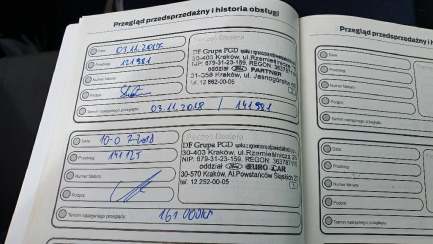 Przegląd przedsprzedażny i historia obsługi
Data 03.11.2017
Przebieg 121981
Numer faktury
Podpis
Termin następnego przeglądu 03.11.2018 / 141981
Pieczęć Dealera
DF Grupa PGD
30-403 Kraków, ul. Rzemieślnicza
NIP: 679-31-23-159, REGON
oddział Ford PARTNER
31-358 Kraków, ul. Jasnogórska
Tel. 12
Data
Przebieg
Numer faktury
Podpis
Termin następnego przeglądu 161 000km
Pieczęć Dealera
DF Grupa PGD
30-403 Kraków, ul. Rzemieślnicza
NIP: 679-31-23-159, REGON
oddział Ford EURO CAR
30-570 Kraków, Al.Powstańców Śląskich
Tel. 12 252-00-05
Przegląd przedsprzedażny i hist
Data
Przebieg
Numer faktury
Podpis
Termin następnego przeglądu
Data
Przebieg
Numer faktury
Podpis
Termin następnego przeglądu